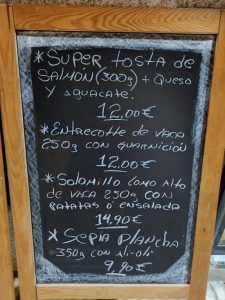 *SUPER TOSTA DE
SALMON(300g) + QUESO
Y AGUACATE.
12,00€
*ENTRECOTTE DE VACA
250g CON GUARNICIÓN
12,00€
*SOLOMILLO LOMO ALTO
DE VACA 250g CON
PATATAS O ENSALADA
14,90€
*SEPIA PLANCHA
350g CON ALI-OLI
9,90€